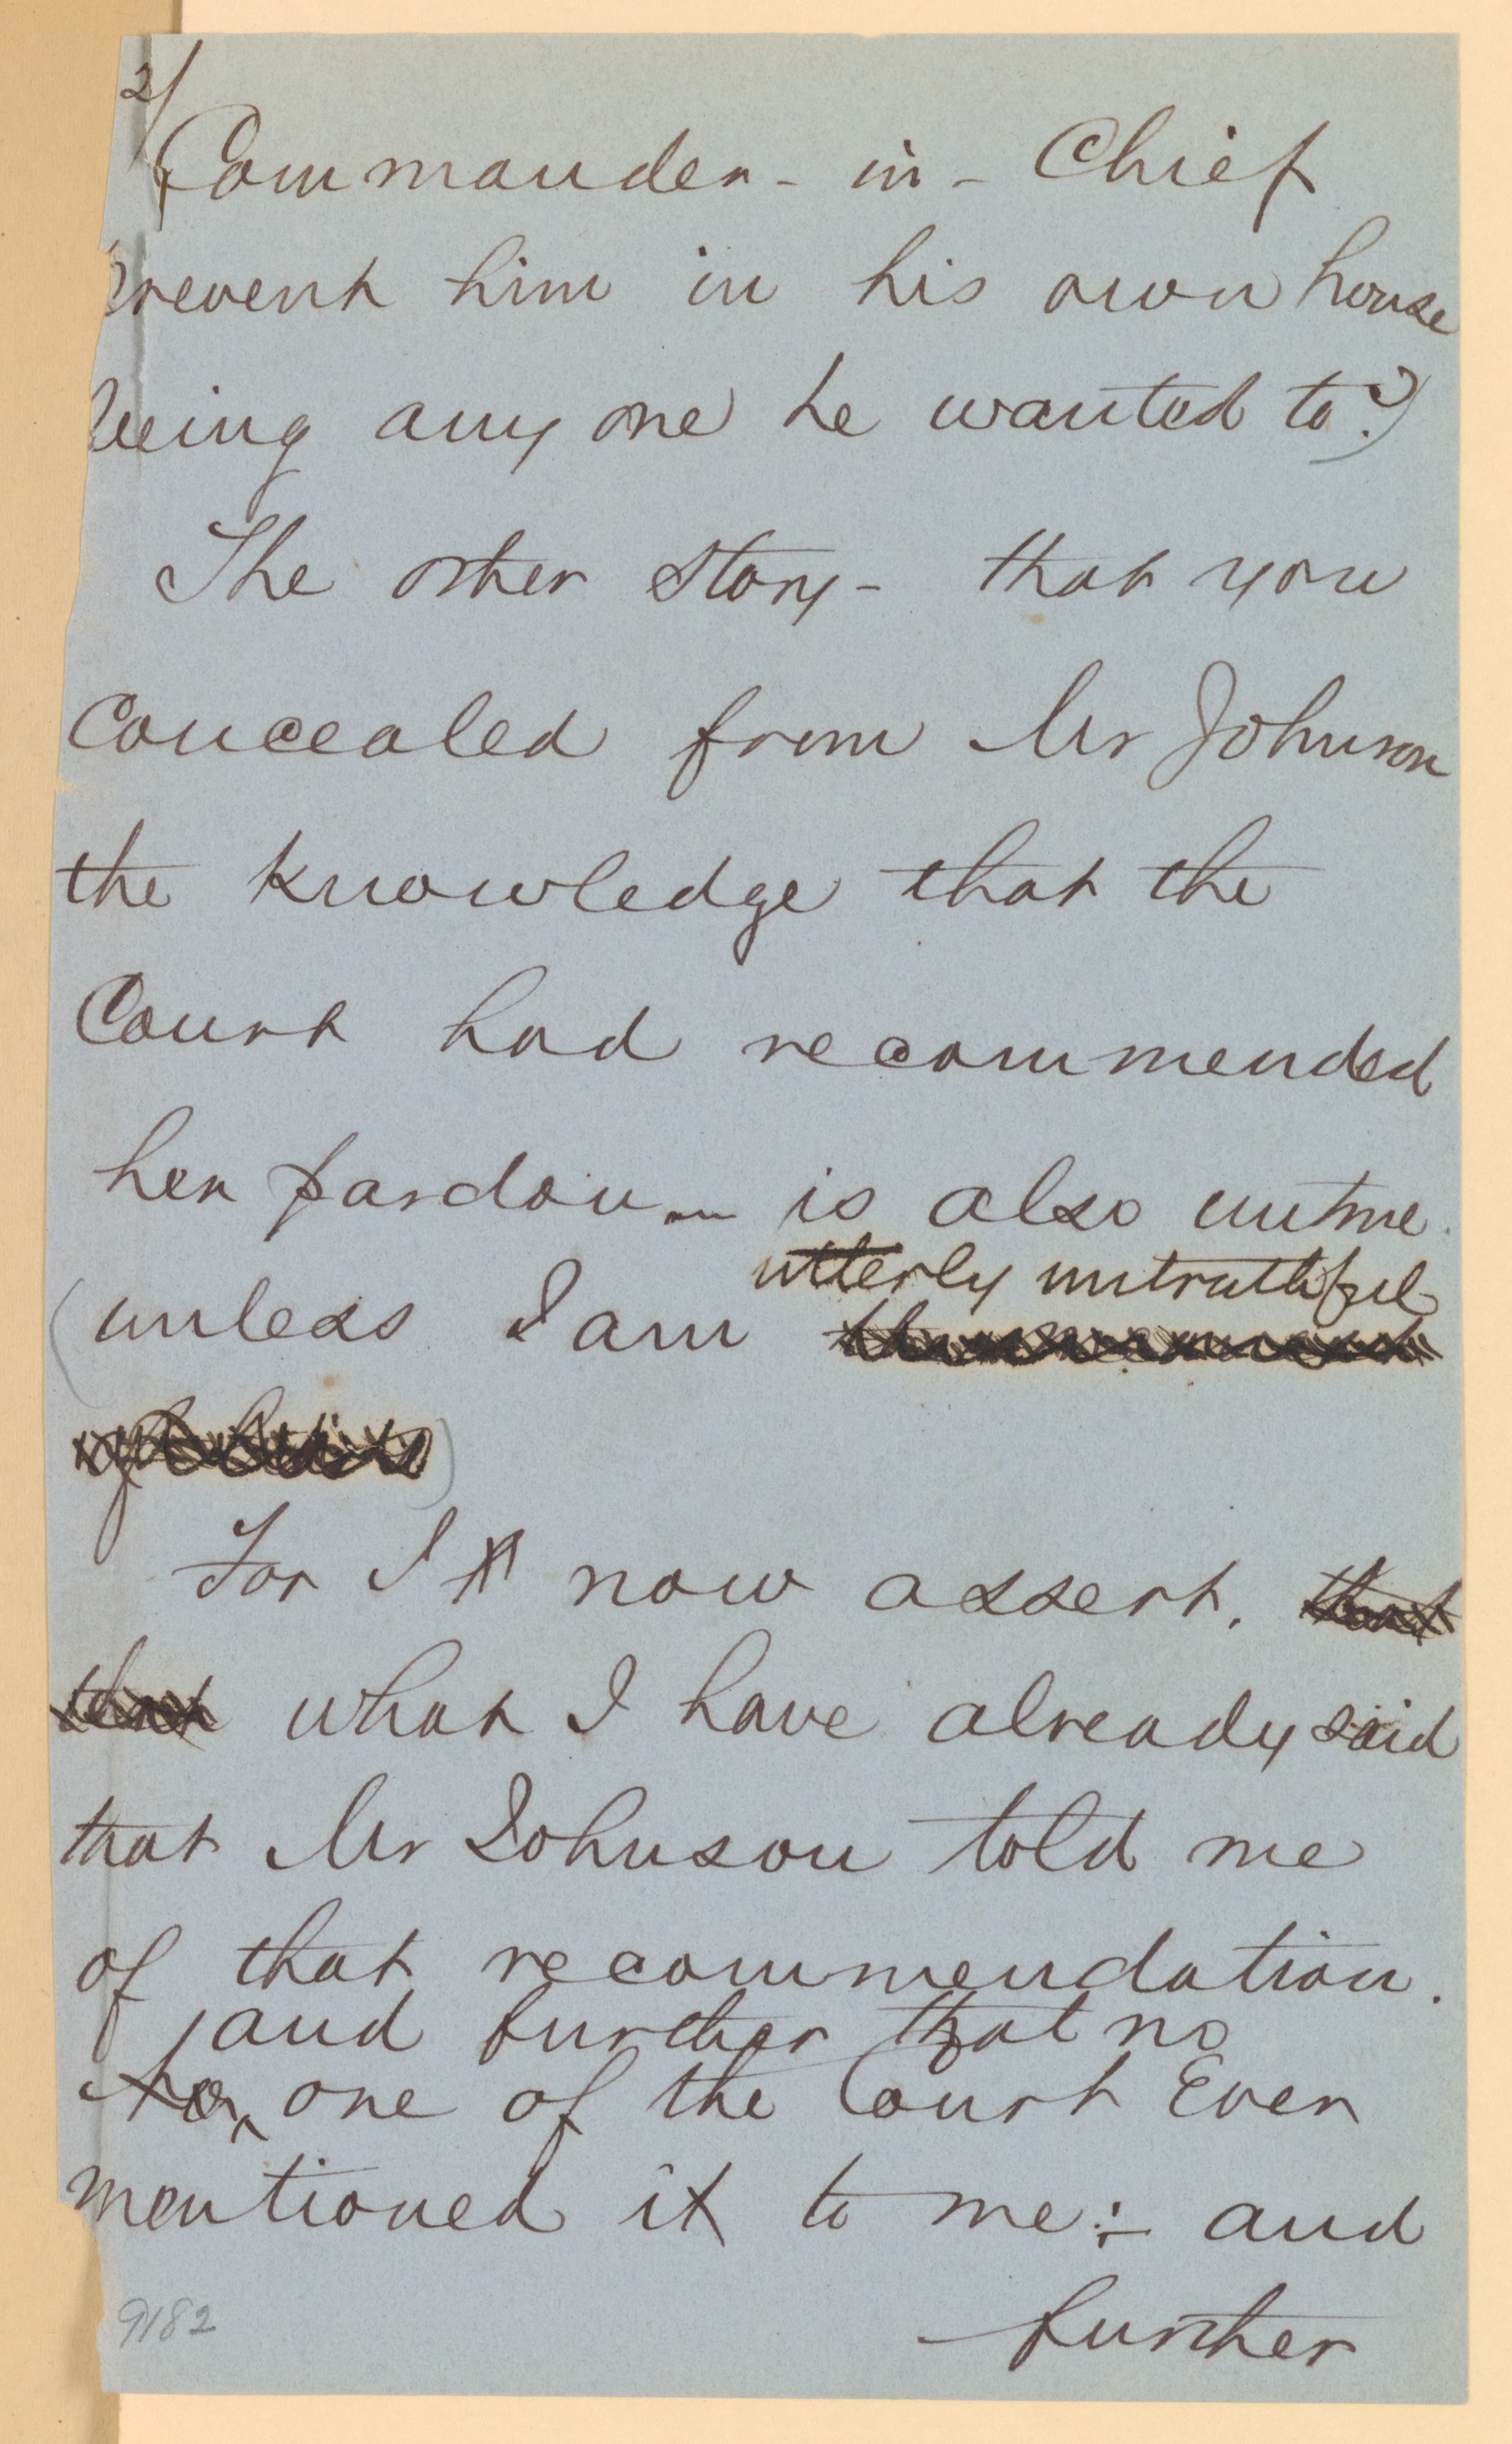 2/
Commander - in - Chief
prevent him in his own house
seeing any one he wanted to?)
The other story - that you
concealed from Mr Johnson
the knowledge that the
Court had recommended
her pardon - is also untrue.
utterly untruthful
(unless I am
)
For I now assert, that
that what I have already said
that Mr Johnson told me
of that recommendation.
, and further that no
No one of the Court ever
mentioned it to me :- and
further
9182